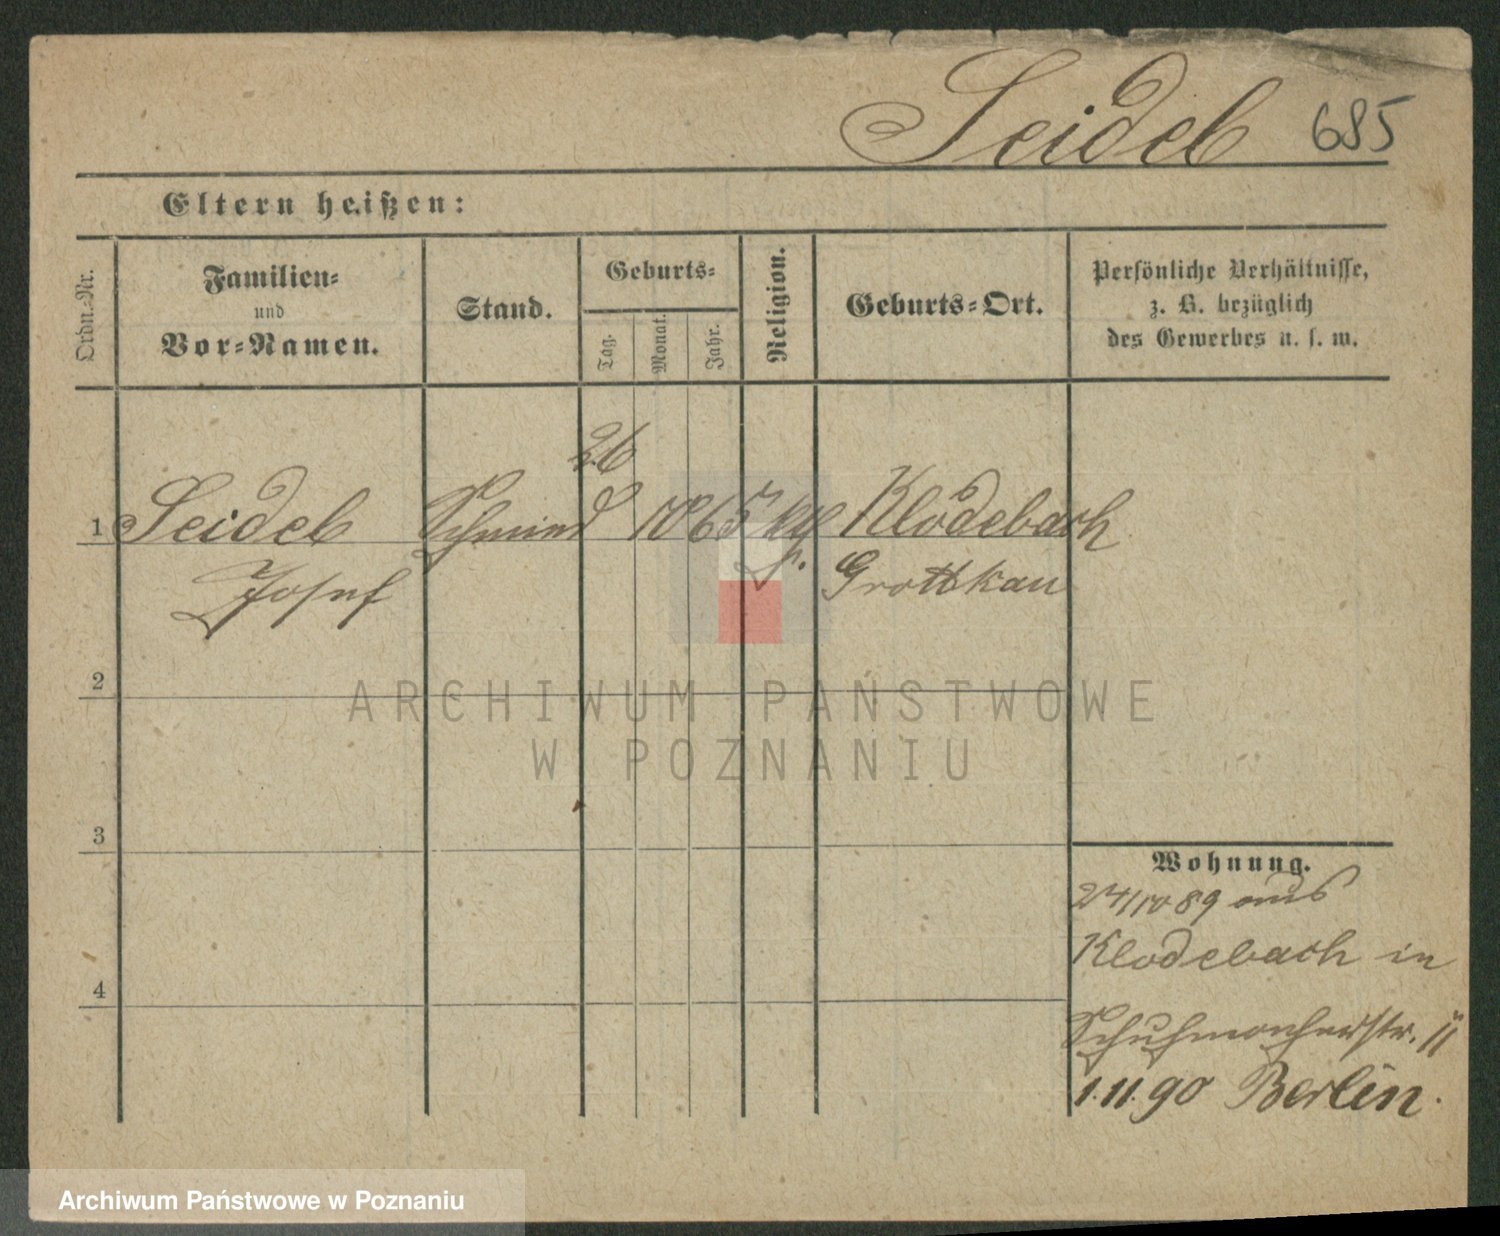 Seidel 685
Eltern heißen:
Ordn.-Nr.
Familien-
und
Vor-Namen.
Stand.
Geburts-
Tag.
Monat.
Jahr.
Religion.
Geburts-Ort.
Persönliche Verhältnisse,
z. B. bezüglich
des Gewerbes u. s. w.
26
1 Seidel Schmied 10 65 kth Klodebach
Josef Grottkau
2
ARCHIWUM PAŃSTWOWE
W POZNANIU
3
Wohnung.
24/10 89 aus
Klodebach in
4
Schuhmacherstr. 11
1.11.90 Berlin.
Archiwum Państwowe w Poznaniu